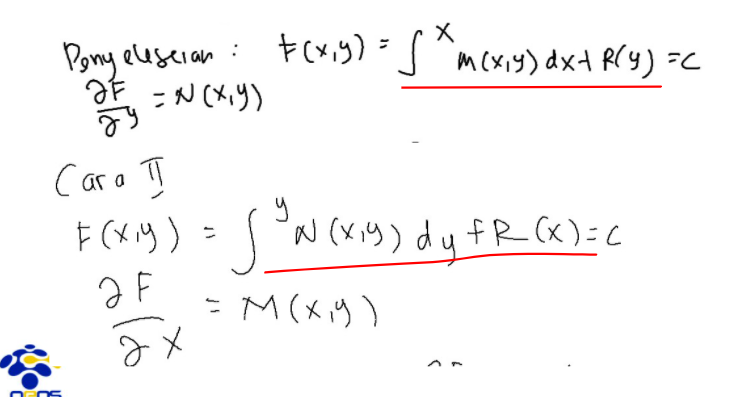 Penyelesaian : F(x,y) = ∫^x M(x,y) dx + R(y) = C
∂F/∂y = N(x,y)
Cara II
F(x,y) = ∫^y N(x,y) dy + R(x) = C
∂F/∂x = M(x,y)